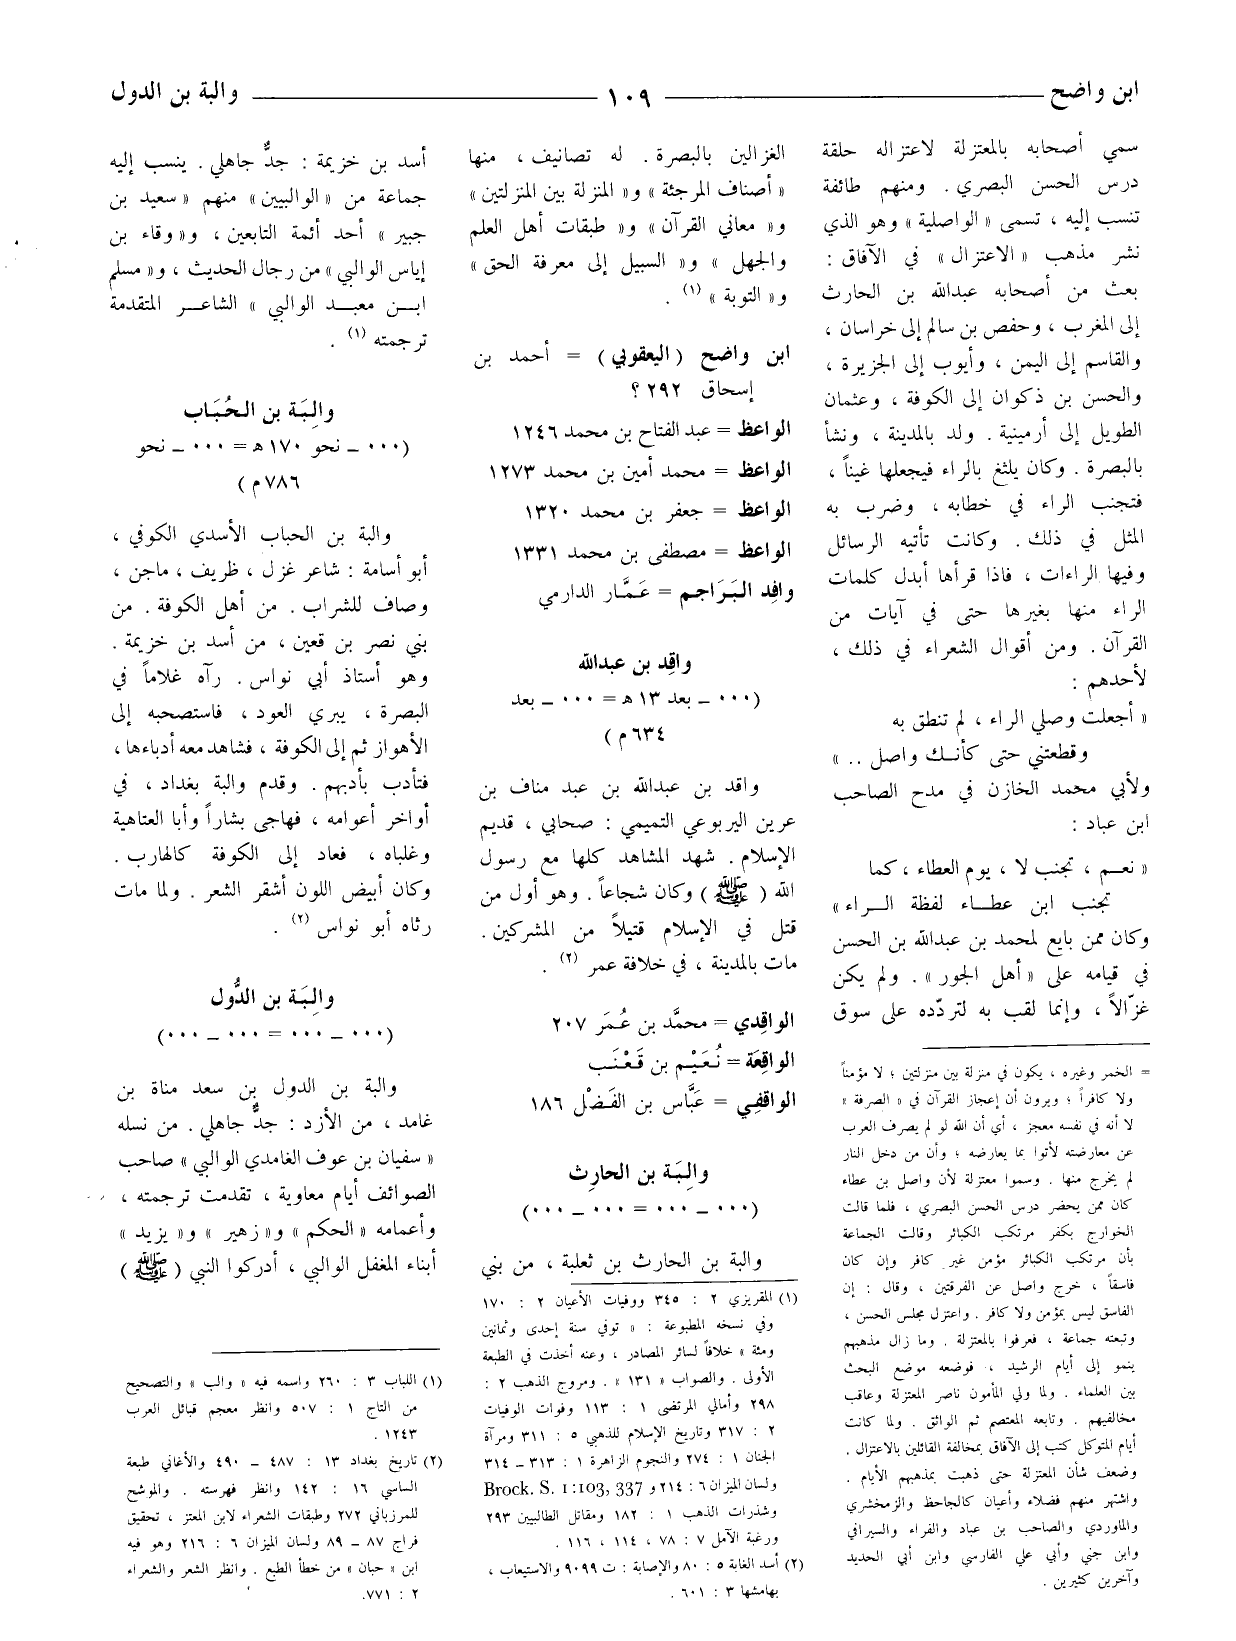 ابن واضح ١٠٩ والبة بن الدول
سمي أصحابه بالمعتزلة لاعتزاله حلقة
درس الحسن البصري . ومنهم طائفة
تنسب إليه ، تسمى « الواصلية » وهو الذي
نشر مذهب « الاعتزال » في الآفاق :
بعث من أصحابه عبدالله بن الحارث
إلى المغرب ، وحفص بن سالم إلى خراسان ،
والقاسم إلى اليمن ، وأيوب إلى الجزيرة ،
والحسن بن ذكوان إلى الكوفة ، وعثمان
الطويل إلى أرمينية . ولد بالمدينة ، ونشأ
بالبصرة . وكان يلثغ بالراء فيجعلها غيناً ،
فتجنب الراء في خطابه ، وضرب به
المثل في ذلك . وكانت تأتيه الرسائل
وفيها الراءات ، فاذا قرأها أبدل كلمات
الراء منها بغيرها حتى في آيات من
القرآن . ومن أقوال الشعراء في ذلك ،
لأحدهم :
« أجعلت وصلي الراء ، لم تنطق به
وقطعتني حتى كأنك واصل .. »
ولأبي محمد الخازن في مدح الصاحب
ابن عباد :
« نعم ، تجنب لا ، يوم العطاء ، كما
تجنب ابن عطاء لفظة الراء »
وكان ممن بايع لمحمد بن عبدالله بن الحسن
في قيامه على « أهل الجور » . ولم يكن
غزّالاً ، وإنما لقب به لتردّده على سوق
= الخمر وغيره ، يكون في منزلة بين منزلتين ؛ لا مؤمناً
ولا كافراً ؛ ويرون أن إعجاز القرآن في « الصرفة »
لا أنه في نفسه معجز ، أي أن الله لو لم يصرف العرب
عن معارضته لأتوا بما يعارضه ؛ وأن من دخل النار
لم يخرج منها . وسموا معتزلة لأن واصل بن عطاء
كان ممن يحضر درس الحسن البصري ، فلما قالت
الخوارج بكفر مرتكب الكبائر وقالت الجماعة
بأن مرتكب الكبائر مؤمن غير كافر وإن كان
فاسقاً ، خرج واصل عن الفرقتين ، وقال : إن
الفاسق ليس بمؤمن ولا كافر . واعتزل مجلس الحسن ،
وتبعته جماعة ، فعرفوا بالمعتزلة . وما زال مذهبهم
ينمو إلى أيام الرشيد ، فوضعه موضع البحث
بين العلماء . ولما ولي المأمون ناصر المعتزلة وعاقب
مخالفيهم . وتابعه المعتصم ثم الواثق . ولما كانت
أيام المتوكل كتب إلى الآفاق بمخالفة القائلين بالاعتزال .
وضعف شأن المعتزلة حتى ذهبت بمذهبهم الأيام .
واشتهر منهم فضلاء وأعيان كالجاحظ والزمخشري
والماوردي والصاحب بن عباد والفراء والسيرافي
وابن جني وأبي علي الفارسي وابن أبي الحديد
وآخرين كثيرين .
الغزالين بالبصرة . له تصانيف ، منها
« أصناف المرجئة » و« المنزلة بين المنزلتين »
و« معاني القرآن » و« طبقات أهل العلم
والجهل » و« السبيل إلى معرفة الحق »
و« التوبة » (١) .
ابن واضح (اليعقوبي) = أحمد بن
إسحاق ٢٩٢ ؟
الواعظ = عبد الفتاح بن محمد ١٢٤٦
الواعظ = محمد أمين بن محمد ١٢٧٣
الواعظ = جعفر بن محمد ١٣٢٠
الواعظ = مصطفى بن محمد ١٣٣١
وافِد البَرَاجم = عَمَّار الدارمي
واقِد بن عبدالله
(٠٠٠ ــ بعد ١٣ ه = ٠٠٠ ــ بعد
٦٣٤ م )
واقد بن عبدالله بن عبد مناف بن
عرين اليربوعي التميمي : صحابي ، قديم
الإسلام . شهد المشاهد كلها مع رسول
الله ( ﷺ ) وكان شجاعاً . وهو أول من
قتل في الإسلام قتيلاً من المشركين .
مات بالمدينة ، في خلافة عمر (٢) .
الواقِدي = محمَّد بن عُمَر ٢٠٧
الواقِعَة = نُعَيْم بن قَعْنَب
الواقفِي = عَبَّاس بن الفَضْل ١٨٦
والِبَة بن الحارِث
(٠٠٠ ــ ٠٠٠ = ٠٠٠ ــ ٠٠٠)
والبة بن الحارث بن ثعلبة ، من بني
(١) المقريزي ٢ : ٣٤٥ ووفيات الأعيان ٢ : ١٧٠
وفي نسخه المطبوعة : « توفي سنة إحدى وثمانين
ومئة » خلافاً لسائر المصادر ، وعنه أخذت في الطبعة
الأولى . والصواب « ١٣١ » . ومروج الذهب ٢ :
٢٩٨ وأمالي المرتضى ١ : ١١٣ وفوات الوفيات
٢ : ٣١٧ وتاريخ الإسلام للذهبي ٥ : ٣١١ ومرآة
الجنان ١ : ٢٧٤ والنجوم الزاهرة ١ : ٣١٣ ــ ٣١٤
ولسان الميزان ٦ : ٢١٤ و Brock. S. 1:103, 337
وشذرات الذهب ١ : ١٨٢ ومقاتل الطالبيين ٢٩٣
ورغبة الآمل ٧ : ٧٨ ، ١١٤ ، ١١٦ .
(٢) أسد الغابة ٥ : ٨٠ والإصابة : ت ٩٠٩٩ والاستيعاب ،
بهامشها ٣ : ٦٠١ .
أسد بن خزيمة : جدٌّ جاهلي . ينسب إليه
جماعة من « الوالبيين » منهم « سعيد بن
جبير » أحد أئمة التابعين ، و« وقاء بن
إياس الوالبي » من رجال الحديث ، و« مسلم
ابن معبد الوالبي » الشاعر المتقدمة
ترجمته (١) .
والِبَة بن الحُبَاب
(٠٠٠ ــ نحو ١٧٠ ه = ٠٠٠ ــ نحو
٧٨٦ م )
والبة بن الحباب الأسدي الكوفي ،
أبو أسامة : شاعر غزل ، ظريف ، ماجن ،
وصاف للشراب . من أهل الكوفة . من
بني نصر بن قعين ، من أسد بن خزيمة .
وهو أستاذ أبي نواس . رآه غلاماً في
البصرة ، يبري العود ، فاستصحبه إلى
الأهواز ثم إلى الكوفة ، فشاهد معه أدباءها ،
فتأدب بأدبهم . وقدم والبة بغداد ، في
أواخر أعوامه ، فهاجى بشاراً وأبا العتاهية
وغلباه ، فعاد إلى الكوفة كالهارب .
وكان أبيض اللون أشقر الشعر . ولما مات
رثاه أبو نواس (٢) .
والِبَة بن الدُّول
(٠٠٠ ــ ٠٠٠ = ٠٠٠ ــ ٠٠٠)
والبة بن الدول بن سعد مناة بن
غامد ، من الأزد : جدٌّ جاهلي . من نسله
« سفيان بن عوف الغامدي الوالبي » صاحب
الصوائف أيام معاوية ، تقدمت ترجمته ،
وأعمامه « الحكم » و« زهير » و« يزيد »
أبناء المغفل الوالبي ، أدركوا النبي ( ﷺ )
(١) اللباب ٣ : ٢٦٠ واسمه فيه « والب » والتصحيح
من التاج ١ : ٥٠٧ وانظر معجم قبائل العرب
١٢٤٣ .
(٢) تاريخ بغداد ١٣ : ٤٨٧ ــ ٤٩٠ والأغاني طبعة
الساسي ١٦ : ١٤٢ وانظر فهرسته . والموشح
للمرزباني ٢٧٢ وطبقات الشعراء لابن المعتز ، تحقيق
فراج ٨٧ ــ ٨٩ ولسان الميزان ٦ : ٢١٦ وهو فيه
ابن « حبان » من خطأ الطبع . وانظر الشعر والشعراء
٢ : ٧٧١.